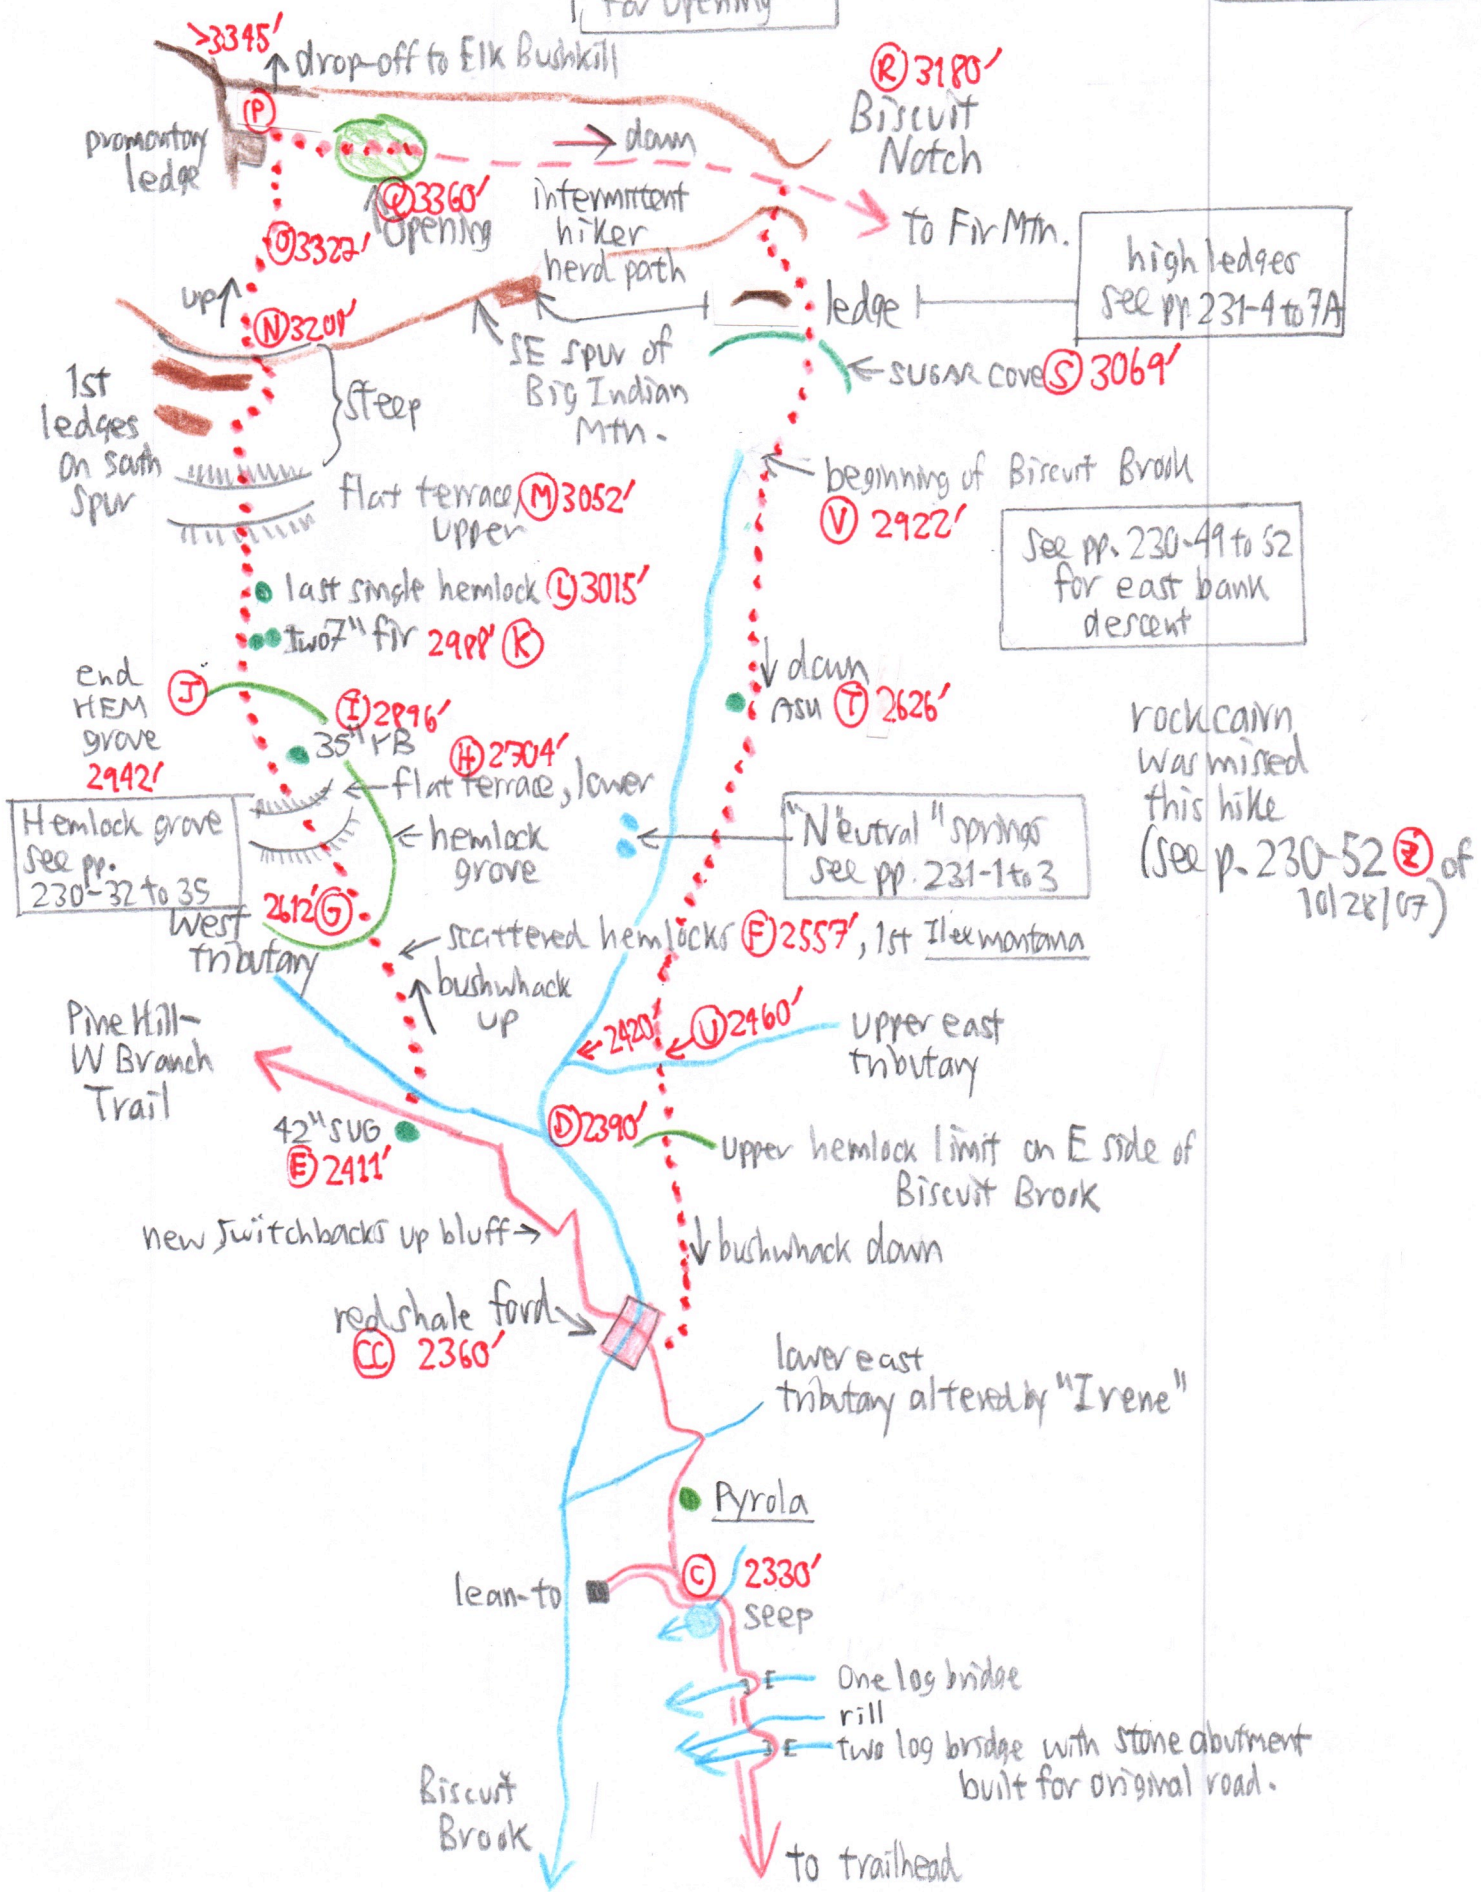 for opening
>3345'
drop-off to Elk Bushkill
P
promontory
ledge
R 3180'
Biscuit
Notch
down
Q 3360'
opening
intermittent
hiker
herd path
to Fir Mtn.
O 3322'
up
N 3201'
high ledges
see pp. 231-4 to 7A
ledge
SE spur of
Big Indian
Mtn.
SUGAR cove S 3069'
1st
ledges
on south
spur
steep
flat terrace, M 3052'
upper
beginning of Biscuit Brook
V 2922'
see pp. 230-49 to 52
for east bank
descent
last single hemlock L 3015'
two 7" fir 2988' K
end
HEM
grove
2942'
J
I 2896'
35" YB
H 2704'
flat terrace, lower
down
ASH T 2626'
rock cairn
was missed
this hike
(see p. 230-52 Z of
10/28/07)
Hemlock grove
see pp.
230-32 to 35
hemlock
grove
"Neutral" springs
see pp. 231-1 to 3
2612' G
West
tributary
scattered hemlocks F 2557', 1st Ilex montana
bushwhack
up
Pine Hill-
W Branch
Trail
2420'
U 2460'
upper east
tributary
42" SUG
E 2411'
D 2390'
upper hemlock limit on E side of
Biscuit Brook
new switchbacks up bluff
bushwhack down
red shale ford
CC 2360'
lower east
tributary altered by "Irene"
Pyrola
lean-to
C 2330'
seep
One log bridge
rill
two log bridge with stone abutment
built for original road.
Biscuit
Brook
to trailhead